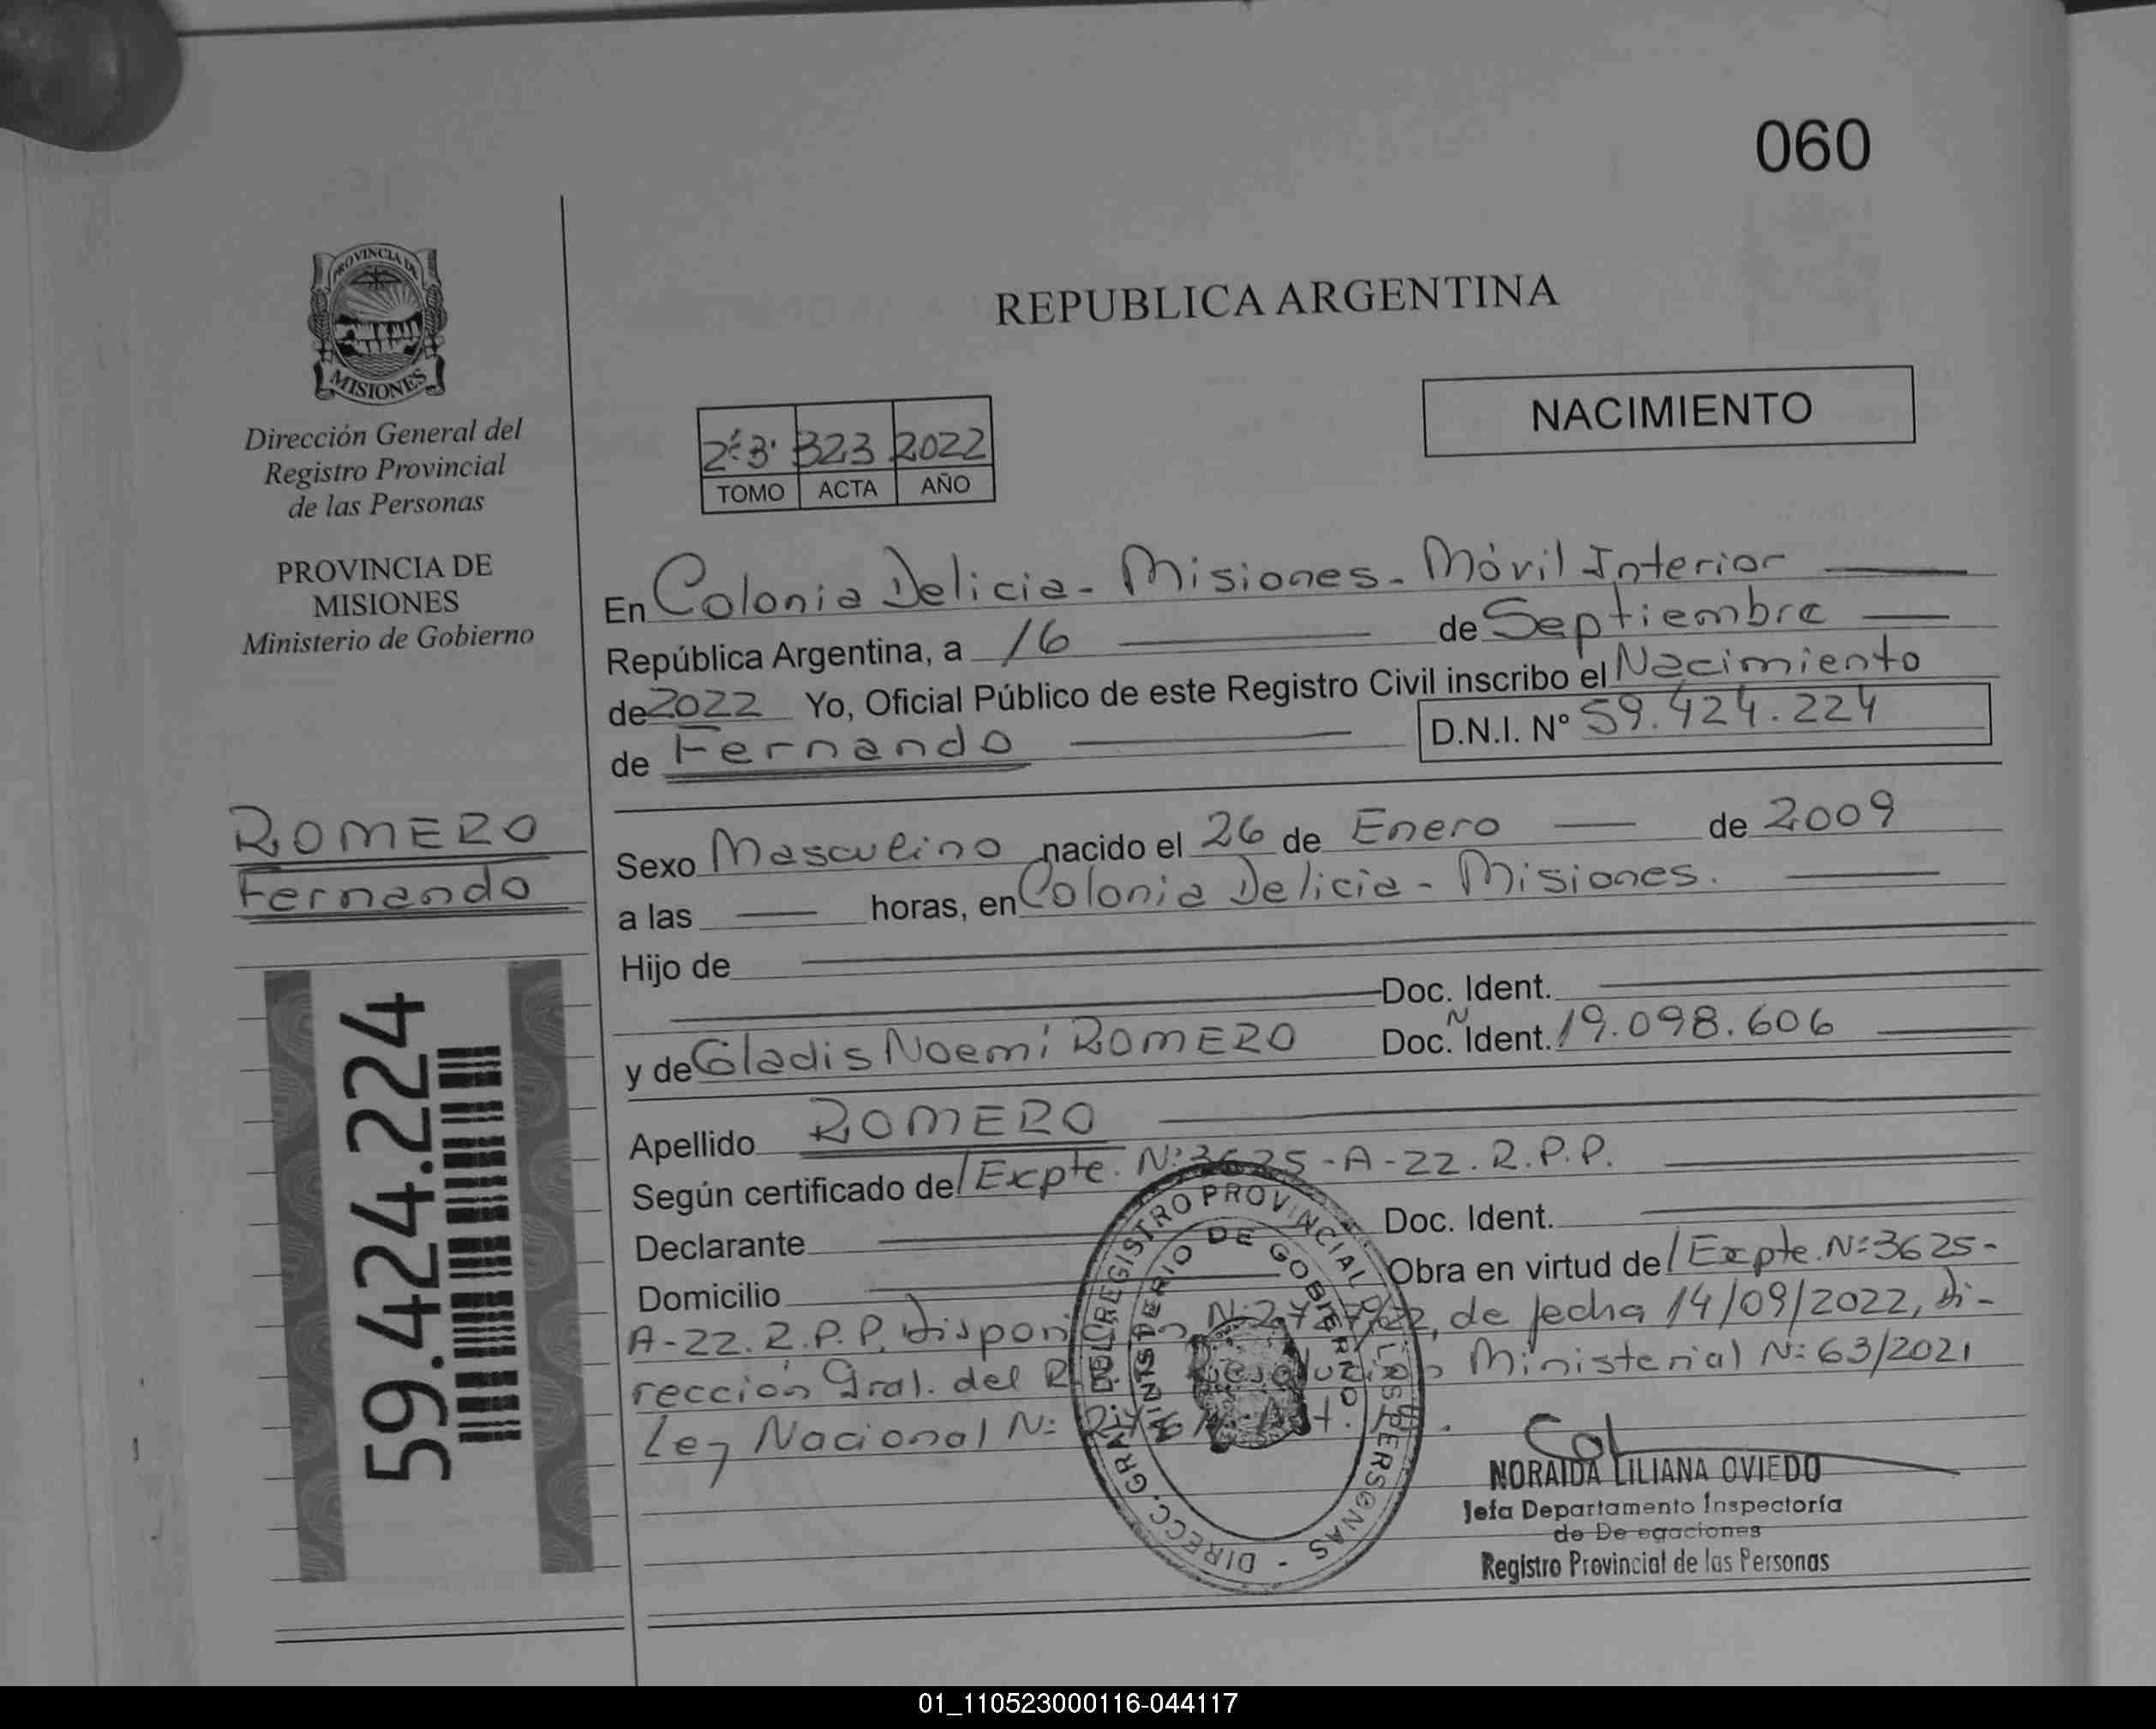 060
PROVINCIA DE
MISIONES
Dirección General del
Registro Provincial
de las Personas
PROVINCIA DE
MISIONES
Ministerio de Gobierno
ROMERO
Fernando
59.424.224
REPUBLICA ARGENTINA
NACIMIENTO
2º 3º 323 2022
TOMO ACTA AÑO
En Colonia Delicia - Misiones - Móvil Interior
República Argentina, a 16 de Septiembre
de 2022 Yo, Oficial Público de este Registro Civil inscribo el Nacimiento
de Fernando D.N.I. Nº 59.424.224
Sexo Masculino nacido el 26 de Enero de 2009
a las horas, en Colonia Delicia - Misiones.
Hijo de
Doc. Ident.
y de Gladis Noemí ROMERO Doc. Ident. 19.098.606
Apellido ROMERO
Según certificado del Expte. Nº 3625-A-22. R.P.P.
Declarante Doc. Ident.
Domicilio Obra en virtud del Expte. Nº 3625-
A-22. R.P.P. de fecha 14/09/2022, Di-
rección Gral. del Ministerial Nº 63/2021
Ley Nacional Nº
DIRECC. GRAL. DEL REGISTRO PROVINCIAL DE LAS PERSONAS -
MINISTERIO DE GOBIERNO
NORAIDA LILIANA OVIEDO
Jefa Departamento Inspectoría
de De egaciones
Registro Provincial de las Personas
01_110523000116-044117